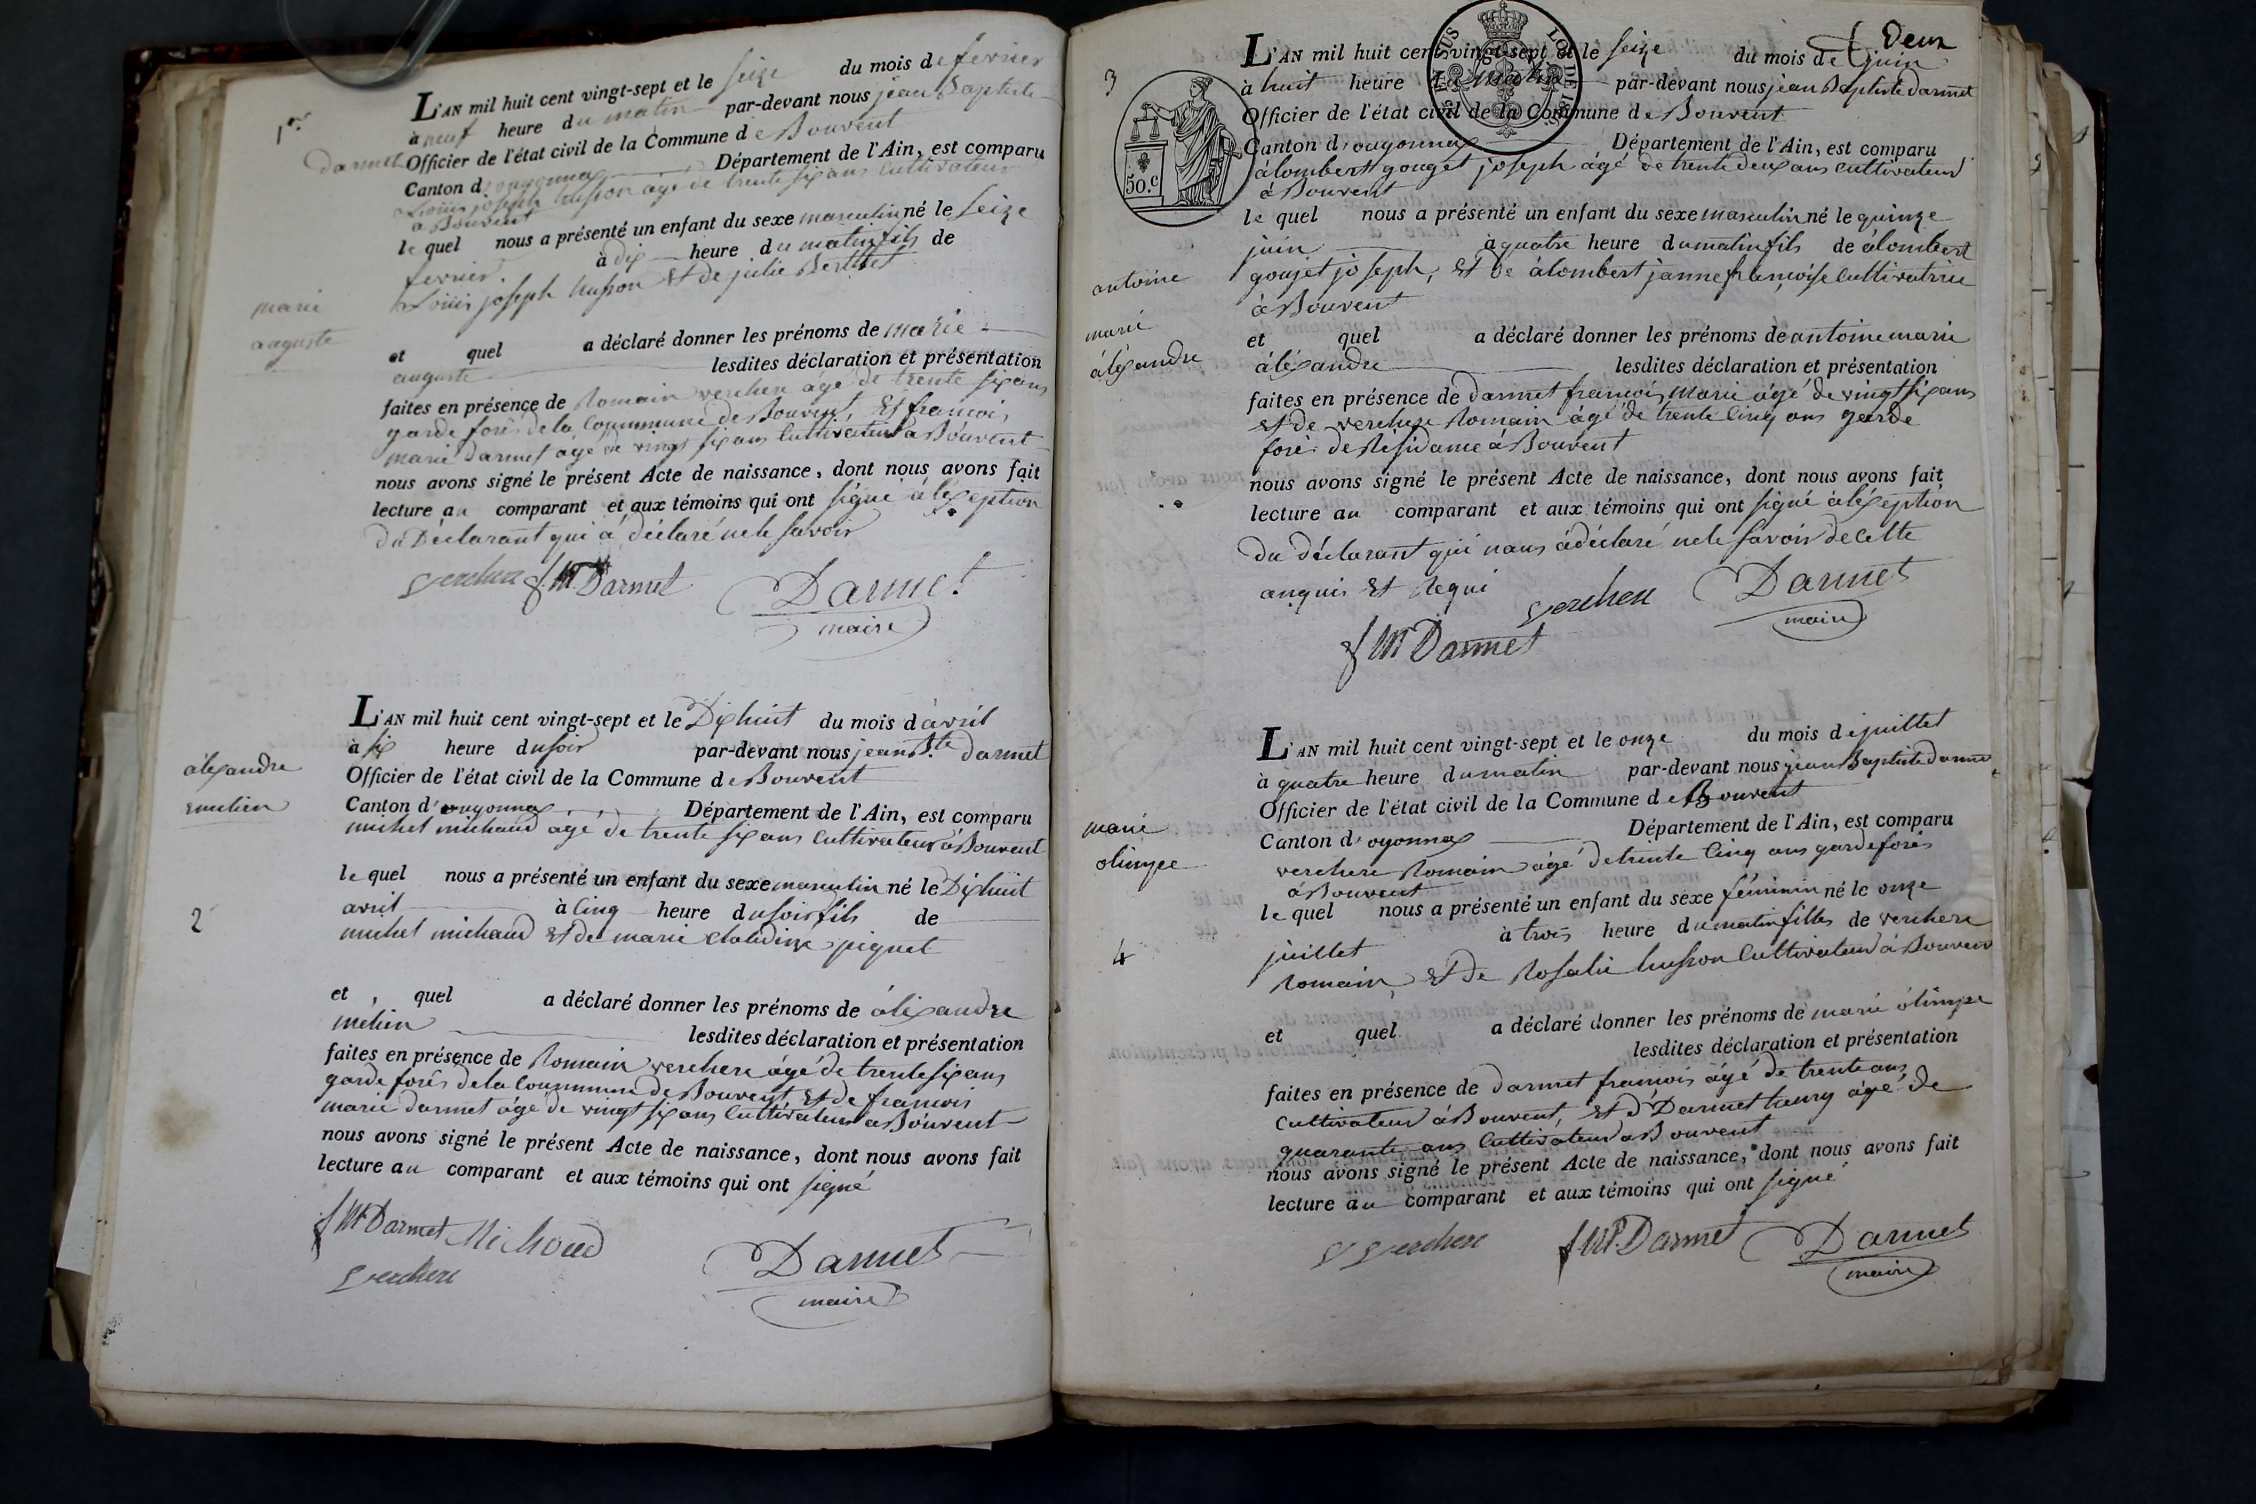 1er
L'AN mil huit cent vingt-sept et le seize du mois de fevrier
à neuf heure du matin par-devant nous jean Baptiste
darmet Officier de l'état civil de la Commune de Bouvent
Canton d'ouyonnax Département de l'Ain, est comparu
Louis joseph husson age de trente six ans Cultivateur
a Bouvent
le quel nous a présenté un enfant du sexe masculin né le seize
fevrier. à dix heure du matin fils de
Louis joseph husson Et de julie Berthet
marie
auguste
et quel a déclaré donner les prénoms de marie
auguste lesdites déclaration et présentation
faites en présence de Romain verchere age de trente six ans
garde forês de la Commune de Bouvent, Et francois
marie darmet agé de vingt six ans Cultivateur a Bouvent
nous avons signé le présent Acte de naissance, dont nous avons fait
lecture au comparant et aux témoins qui ont signé à léxeption
du Déclarant qui a déclaré ne le savoir
verchere f. M. Darmet Darmet
maire
L'AN mil huit cent vingt-sept et le Dixhuit du mois d'avril
à six heure du soir par-devant nous jean B.te darmet
Officier de l'état civil de la Commune de Bouvent
Canton d'ouyonnax Département de l'Ain, est comparu
michel michaud àgé de trente six ans Cultivateur à Bouvent
àlexandre
emelien
le quel nous a présenté un enfant du sexe masculin né le Dixhuit
avril à Cinq heure du soir fils de
michel michaud Et de marie claudine piquet
2
et quel a déclaré donner les prénoms de àlexandre
melien lesdites déclaration et présentation
faites en présence de Romain verchere àgé de trente six ans
garde forês de la Commune de Bouvent Et de francois
marie darmet àgé de vingt six ans Cultivateur a Bouvent
nous avons signé le présent Acte de naissance, dont nous avons fait
lecture au comparant et aux témoins qui ont signé
f M. Darmet Michoud
verchere Darmet
maire
Deux
3
50.c
L'AN mil huit cent vingt-sept et le seize du mois de juin
à huit heure du matin par-devant nous jean Baptiste darmet
Officier de l'état civil de la Commune de Bouvent
Canton d'ouyonnax Département de l'Ain, est comparu
àlombert gouget joseph àgé de trente deux ans cultivateur
à Bouvent
le quel nous a présenté un enfant du sexe masculin né le quinze
juin à quatre heure du matin fils de àlombert
goujet joseph, Et de àlombert janne françoise Cultivatrice
à Bouvent
antoine
marie
àléxandre
et quel a déclaré donner les prénoms de antoine marie
àléxandre lesdites déclaration et présentation
faites en présence de darmet francois marie àgé de vingt six ans
Et de verchere Romain àgé de trente Cinq ans garde
forês de Résidance à Bouvent
nous avons signé le présent Acte de naissance, dont nous avons fait
lecture au comparant et aux témoins qui ont signé à léxeption
du déclarant qui nous à déclaré ne le savoir de Cette
anquis Et Requi
verchere Darmet
maire
f M Darmet
L'AN mil huit cent vingt-sept et le onze du mois de juillet
à quatre heure du matin par-devant nous jean Baptiste darmet
Officier de l'état civil de la Commune de Bouvent
Canton d'oyonnax Département de l'Ain, est comparu
verchere Romain àgé de trente Cinq ans garde forês
à Bouvent
marie
olimpe
le quel nous a présenté un enfant du sexe féminin né le onze
juillet à trois heure du matin filles de verchere
Romain, Et de Rosalie husson Cultivateur à Bouvent
4
et quel a déclaré donner les prénoms de marie ólimpe
lesdites déclaration et présentation
faites en présence de darmet francois àgé de trente ans
Cultivateur à Bouvent, Et d'Darmet hanry àgé de
quarante ans Cultivateur a Bouvent
nous avons signé le présent Acte de naissance, dont nous avons fait
lecture au comparant et aux témoins qui ont signé
verchere f M. Darmet Darmet
maire